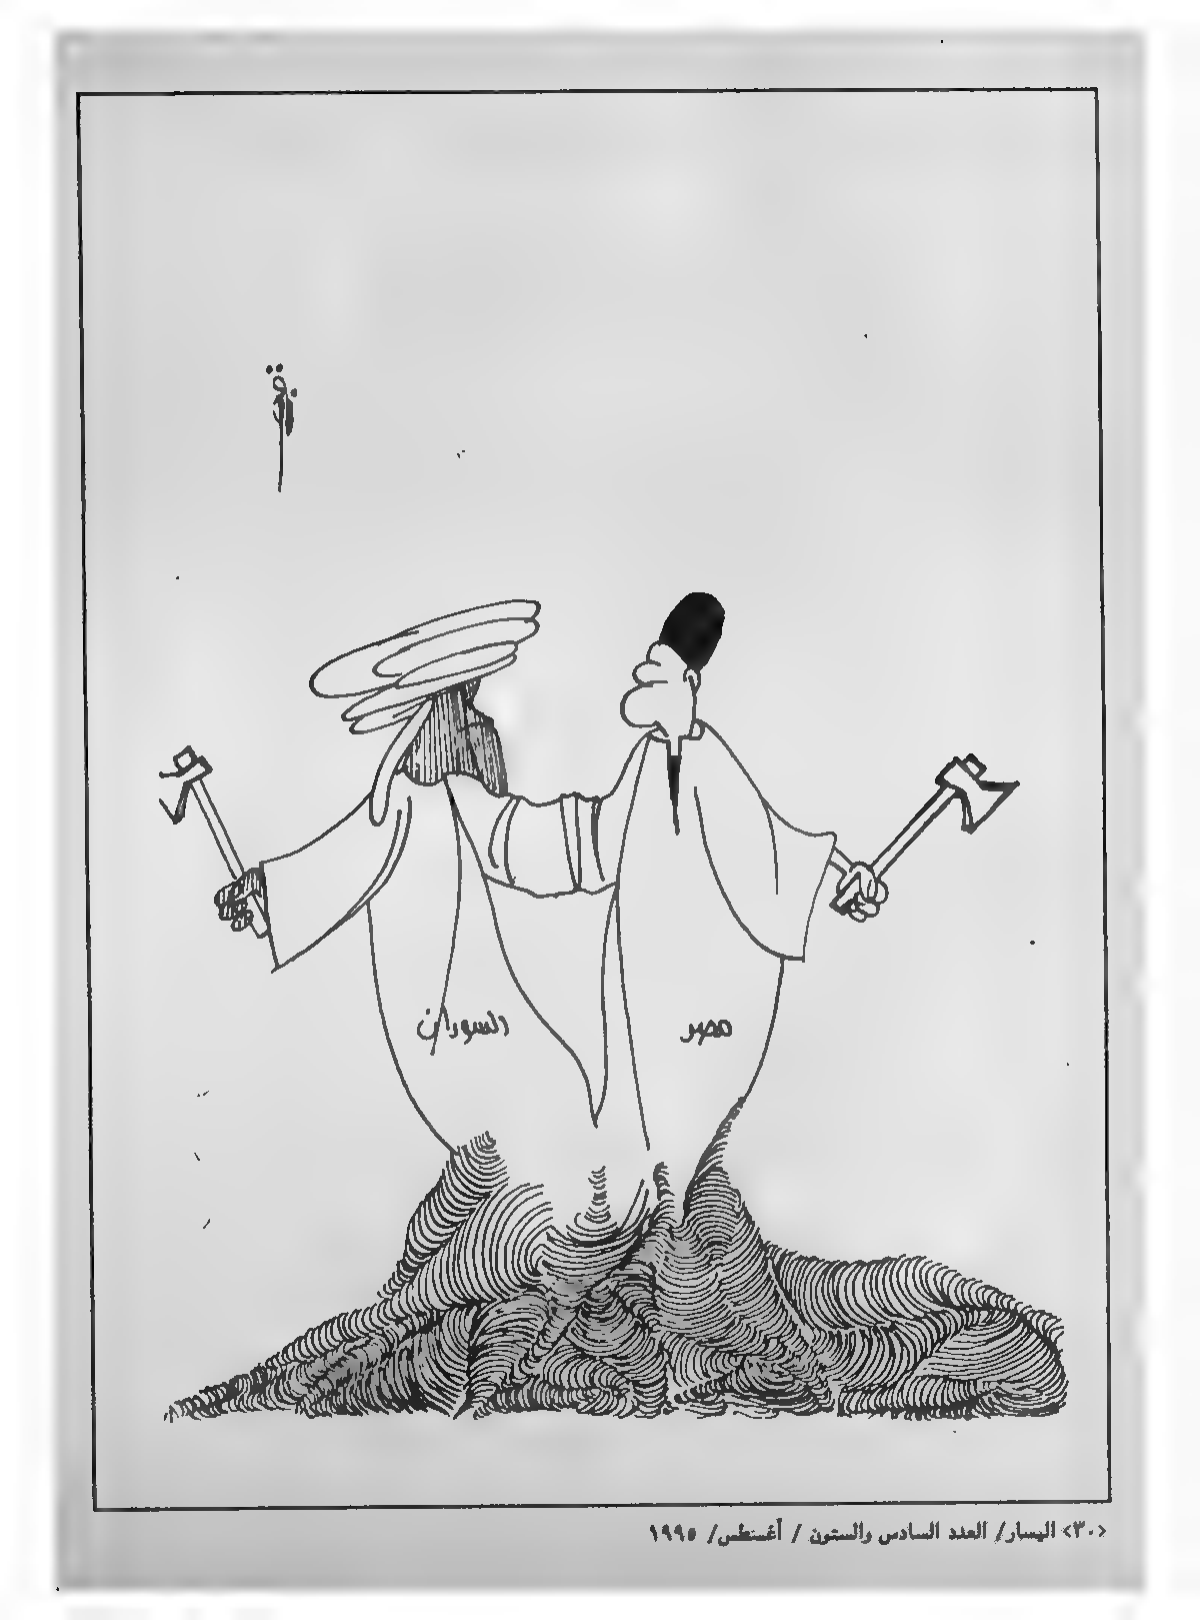 السودان
مصر
<٣٠> اليسار/ العدد السادس والستون / أغسطس/ ١٩٩٥